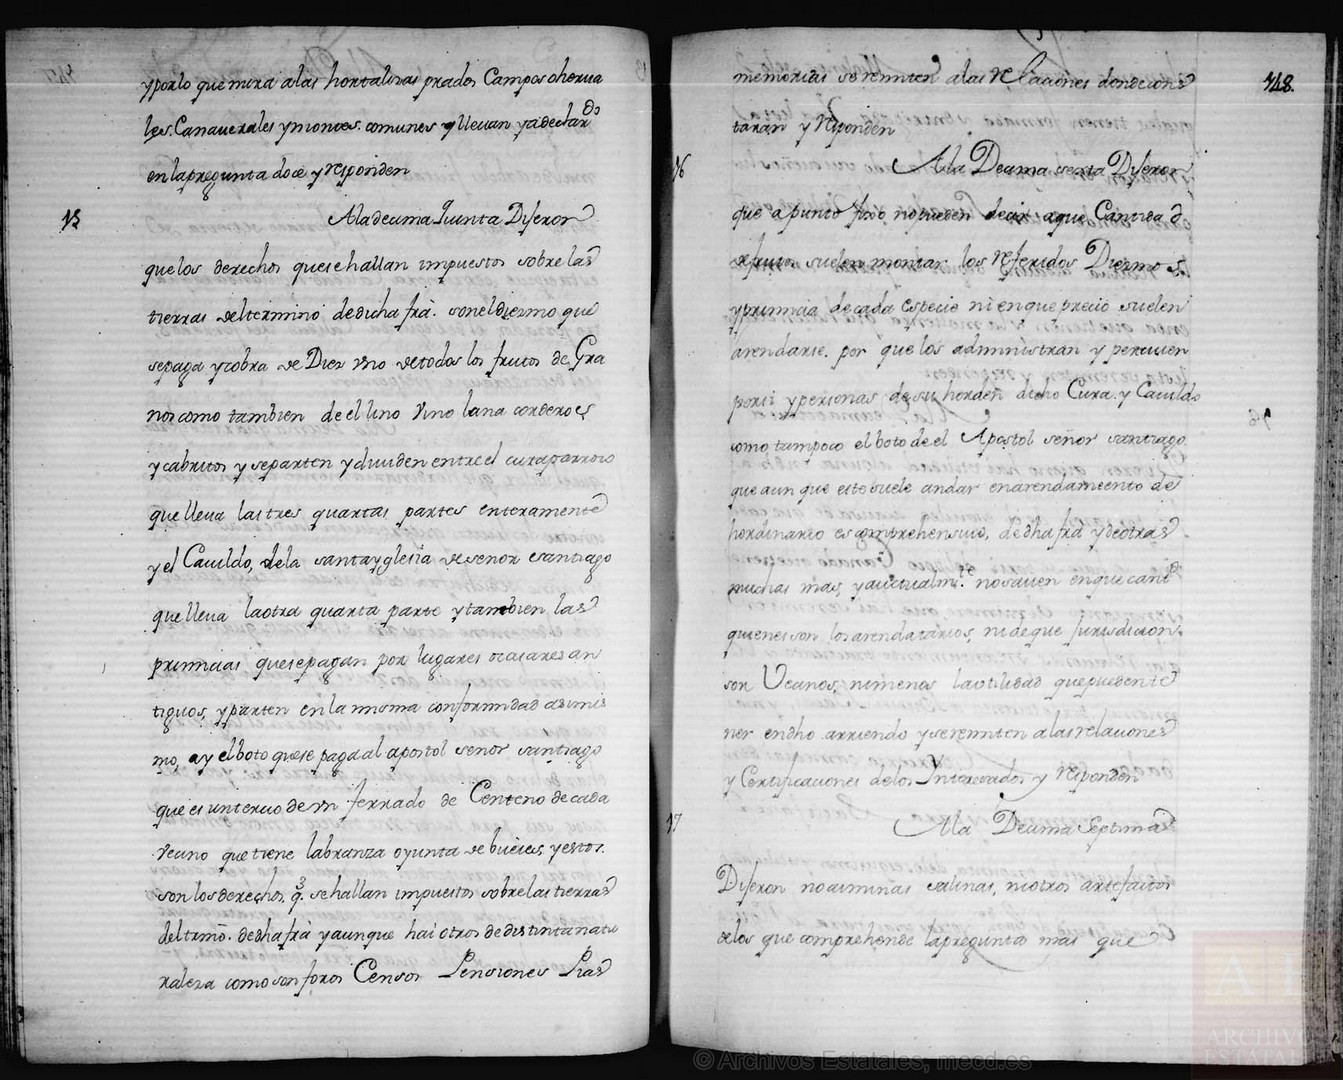 y por lo que mira a las hortalizas prados Campos o herva
les. Canaverales y montes comunes y llevan ya declardo
en la pregunta doce y responden
15
A la decima Quinta Dijeron
que los derechos que se hallan impuestos sobre las
tierras del termino de dicha frã. son el diezmo que
se paga y cobra de Diez uno de todos los frutos de Gra
nos como tambien de el lino vino lana corderos
y cabritos y se parten y dividen entre el cura parroco
que lleva las tres quartas partes enteramente
y el Cavildo, de la santa yglesia de señor santiago
que lleva la otra quarta parte y tambien las
primicias que se pagan por lugares o casares an
tiguos, y parten en la misma conformidad asimis
mo, ay el boto que se paga al apostol señor santiago
que es un tercio de un ferrado de Centeno de cada
vecino que tiene labranza o yunta de bueies, y estos.
son los derechos q.e se hallan impuestos sobre las tierras
del trmõ. de dha fra y aunque hai otros de distinta natu
raleza como son foros Censos Pensiones Pias
748.
memorias se remiten a las Relaciones donde cons
taran y Responden
16
A la Decima sexta Dijeron
que a punto fixo no pueden decir a que Cantidad
de frutos suelen montar los Referidos Diezmos
y primicia de cada especie ni en que precio suelen
arendarse. por que los administran y perciven
por si y personas de su horden dicho Cura. y Cavildo
como tampoco el boto de el Apostol señor santiago
que aun que este suele andar en arendamiento de
hordinario es comprehensivo, de dha fra y de otras
muchas mas, y auctualm.te no saven en que cantd
quienes son los arendatarios, ni de que Jurisdicion.
son Vecinos, ni menos la utilidad que puede te
ner en dho arriendo y se remiten a las relaciones
y Certificaciones de los Interesados y Responden
17
A la Decima Septima
Dijeron no ai minas salinas, ni otros artefactos
de los que comprehende la pregunta mas que
© Archivos Estatales, mecd.es
AE
ARCHIVOS
ESTATAL